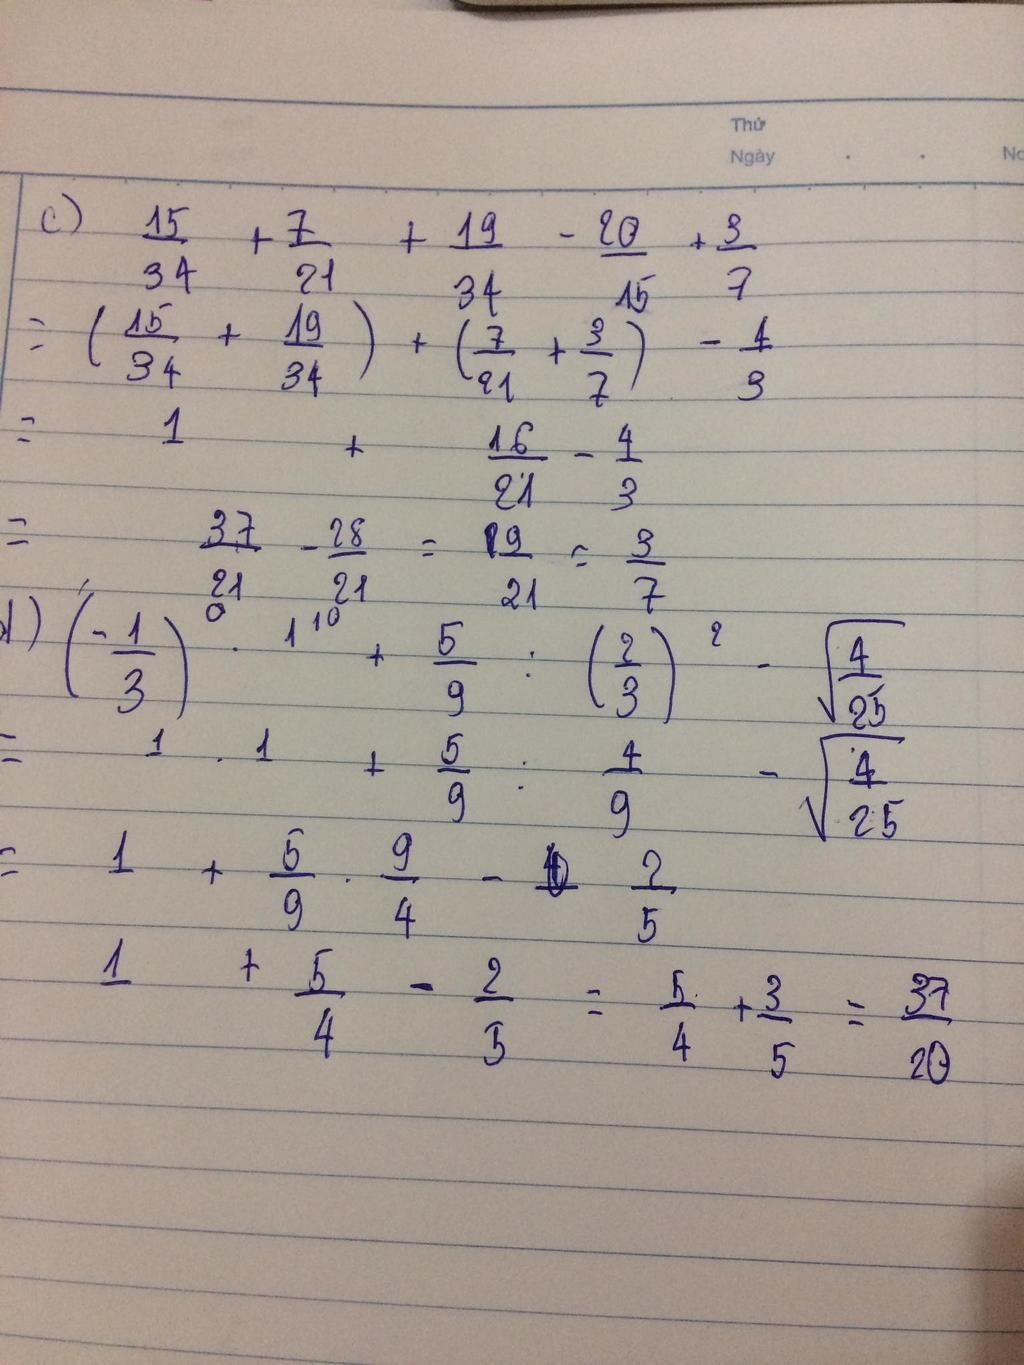 Thứ
Ngày . . No
c) 15/34 + 7/21 + 19/34 - 20/15 + 3/7
= (15/34 + 19/34) + (7/21 + 3/7) - 4/3
= 1 + 16/21 - 4/3
= 37/21 - 28/21 = 9/21 = 3/7
d) (-1/3)^0 . 1^10 + 5/9 : (2/3)^2 - √(4/25)
= 1 . 1 + 5/9 : 4/9 - √(4/25)
= 1 + 5/9 . 9/4 - 2/5
1 + 5/4 - 2/5 = 5/4 + 3/5 = 37/20